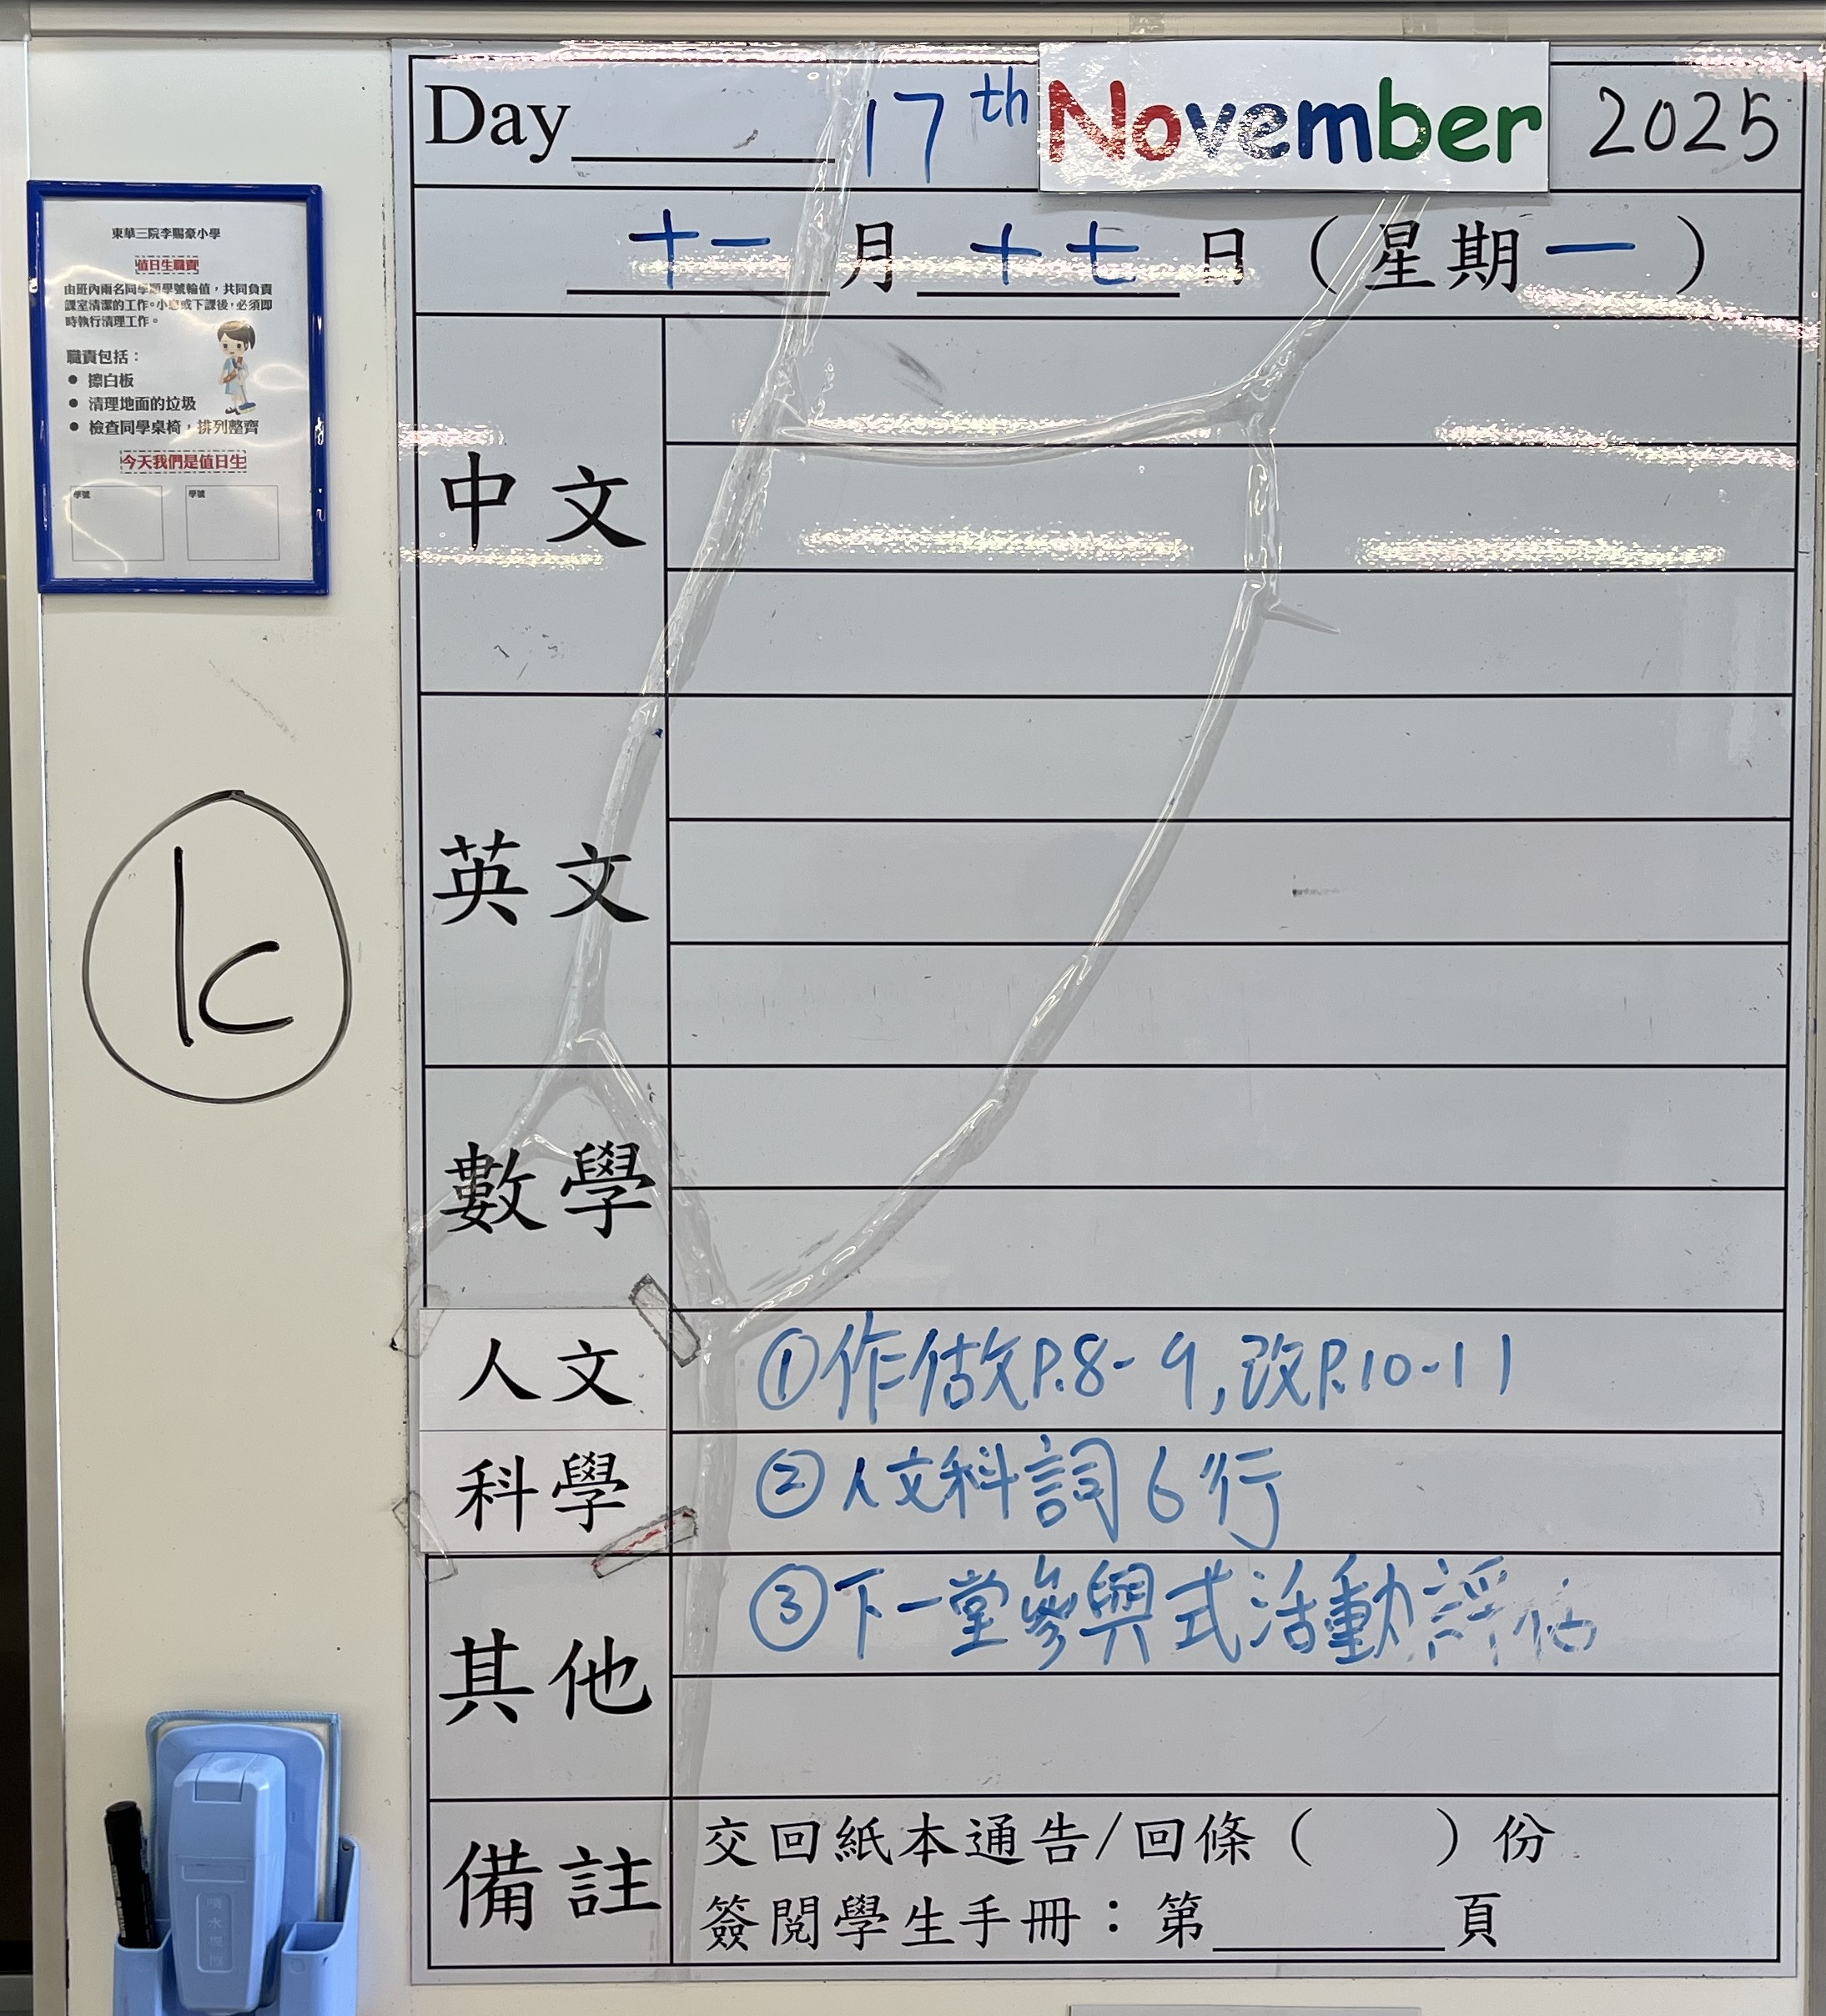 Day 17th November 2025
十一月十七日（星期一）
東華三院李賜豪小學
值日生職責
由班內兩名同學順學號輪值，共同負責
課室清潔的工作。小息或下課後，必須即
時執行清理工作。
職責包括：
● 擦白板
● 清理地面的垃圾
● 檢查同學桌椅，排列整齊
今天我們是值日生
學號 學號
中文
英文
1c
數學
人文 ①作做P.8-9,改P.10-11
科學 ②人文科詞6行
其他 ③下一堂參與式活動評估
備註
交回紙本通告/回條（ ）份
簽閱學生手冊：第______頁